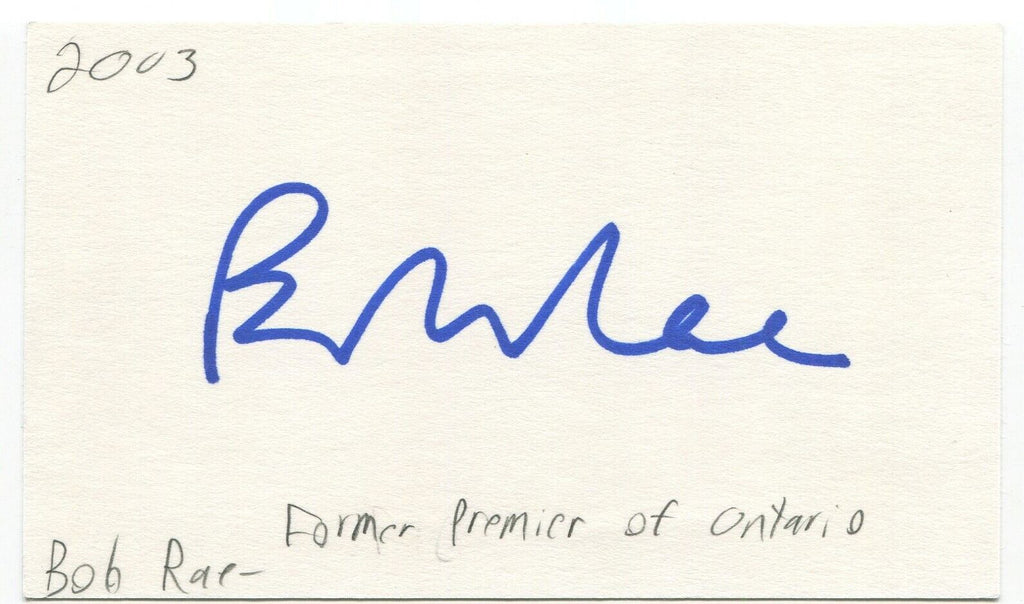 2003
Bob Rae
Former Premier of Ontario
Bob Rae-